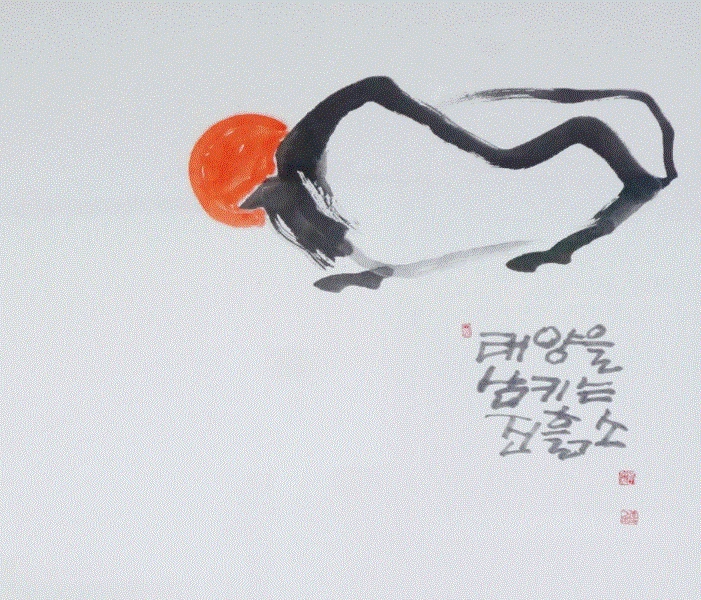 태양을
삼키는
진흙소